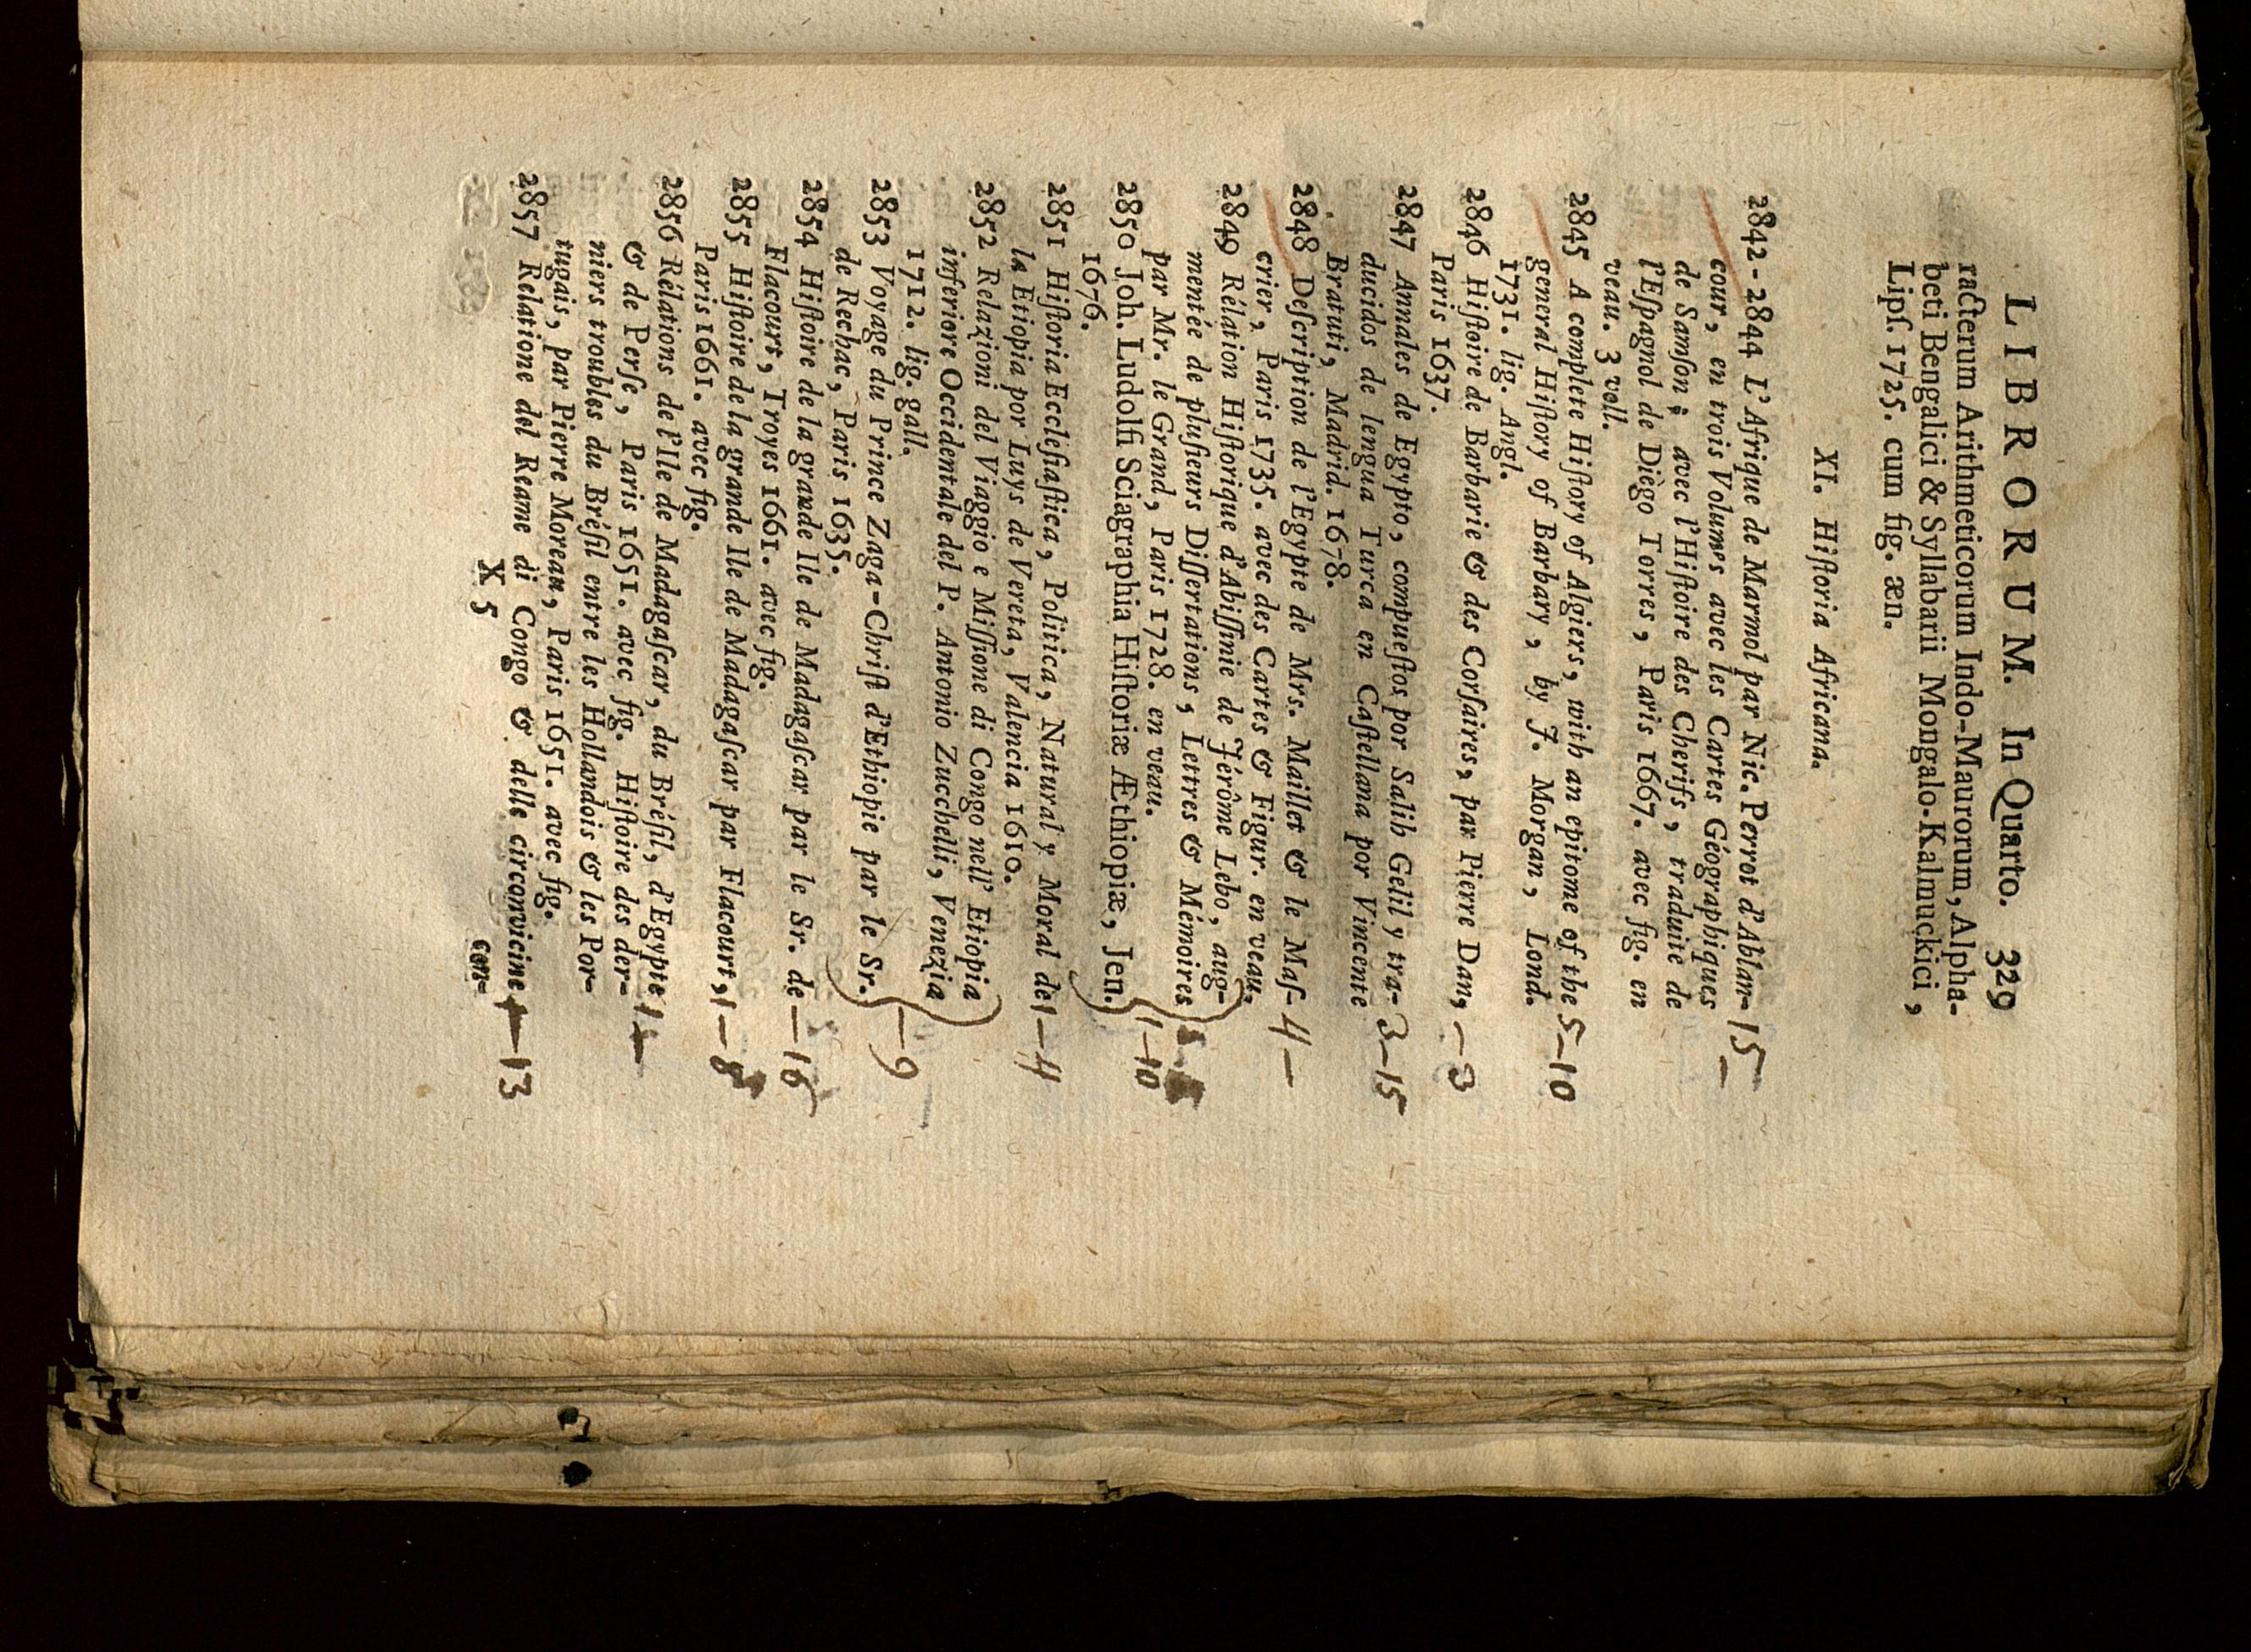 LIBRORUM. In Quarto. 329
racterum Arithmeticorum Indo-Maurorum, Alpha-
beti Bengalici & Syllabarii Mongalo-Kalmuckici,
Lipſ. 1725. cum fig. æn.
XI. Hiſtoria Africana.
2842-2844 L'Afrique de Marmol par Nic. Perrot d'Ablan- 15 —
cour, en trois Volumes avec les Cartes Géographiques
de Samſon; avec l'Hiſtoire des Cherifs, traduite de
l'Eſpagnol de Diègo Torres, Paris 1667. avec fig. en
veau. 3 voll.
2845 A complete Hiſtory of Algiers, with an epitome of the 5—10
general Hiſtory of Barbary, by J. Morgan, Lond.
1731. lig. Angl.
2846 Hiſtoire de Barbarie & des Corſaires, par Pierre Dan, — 3
Paris 1637.
2847 Annales de Egypto, compueſtos por Salih Gelil y tra- 3—15
ducidos de lengua Turca en Caſtellana por Vincente
Bratuti, Madrid. 1678.
2848 Deſcription de l'Egypte de Mrs. Maillet & le Maſ- 4 —
crier, Paris 1735. avec des Cartes & Figur. en veau.
2849 Rélation Hiſtorique d'Abiſſinie de Jérôme Lebo, aug-
mentée de pluſieurs Diſſertations, Lettres & Mémoires
par Mr. le Grand, Paris 1728. en veau.
2850 Joh. Ludolfi Sciagraphia Hiſtoriæ Æthiopiæ, Jen. 1—10
1676.
2851 Hiſtoria Eccleſiaſtica, Politica, Natural y Moral de 1—4
la Etiopia por Luys de Vereta, Valencia 1610.
2852 Relazioni del Viaggio e Miſſione di Congo nell' Etiopia
inferiore Occidentale del P. Antonio Zucchelli, Venezia
1712. lig. gall. 1—9
2853 Voyage du Prince Zaga-Chriſt d'Ethiopie par le Sr.
de Rechac, Paris 1635.
2854 Hiſtoire de la grande Ile de Madagaſcar par le Sr. de —16
Flacourt, Troyes 1661. avec fig.
2855 Hiſtoire de la grande Ile de Madagaſcar par Flacourt, 1—8
Paris 1661. avec fig.
2856 Rélations de l'Ile de Madagaſcar, du Bréſil, d'Egypte
& de Perſe, Paris 1651. avec fig. Hiſtoire des der-
niers troubles du Bréſil entre les Hollandois & les Por-
tugais, par Pierre Moreau, Paris 1651. avec fig.
2857 Relatione del Reame di Congo & delle circonvicine —13
X 5 con-